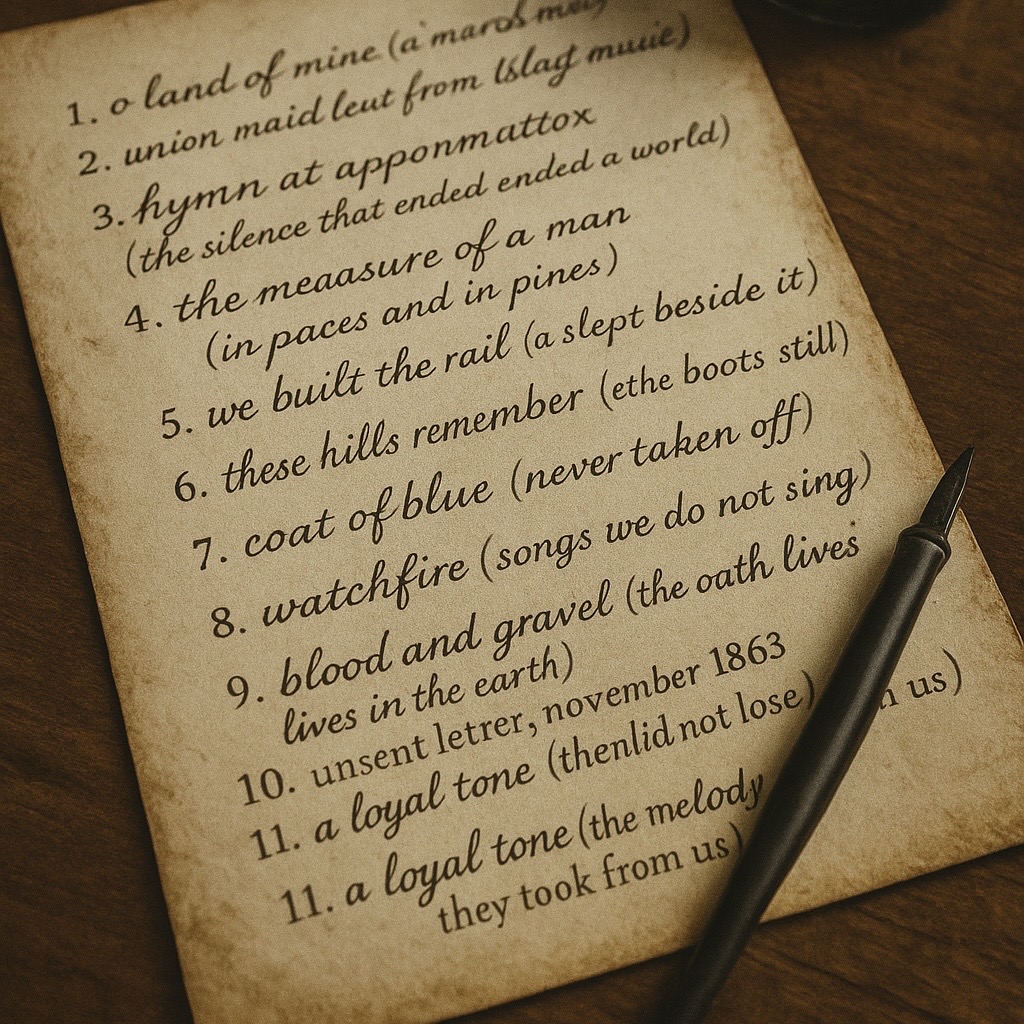 1. o land of mine (a marod
2. union maid leut from muuie)
3. hymn at apponmattox
(the silence that ended ended a world)
4. the meaasure of a man
(in paces and in pines)
5. we built the rail (a slept beside it)
6. these hills remember (ethe boots still)
7. coat of blue (never taken off)
8. watchfire (songs we do not sing)
9. blood and gravel (the oath lives
lives in the earth)
10. unsent letrer, november 1863
11. a loyal tone (thenlid not lose) us)
11. a loyal tone (the melody
they took from us)